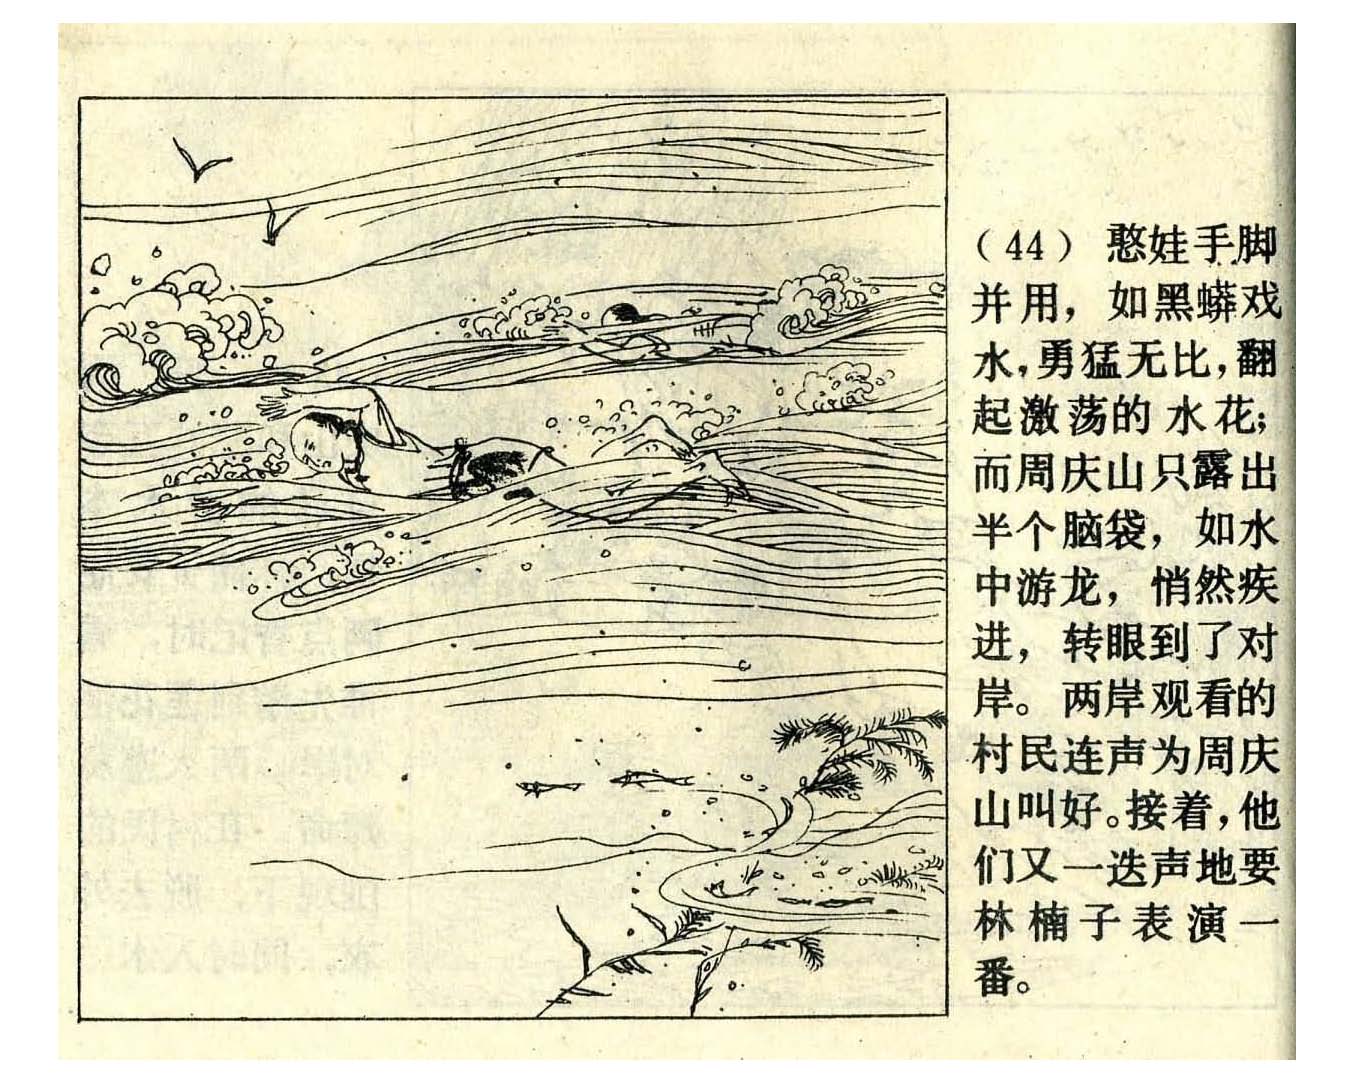 （44） 憨娃手脚
并用，如黑蟒戏
水，勇猛无比，翻
起激荡的水花；
而周庆山只露出
半个脑袋，如水
中游龙，悄然疾
进，转眼到了对
岸。两岸观看的
村民连声为周庆
山叫好。接着，他
们又一迭声地要
林楠子表演一
番。